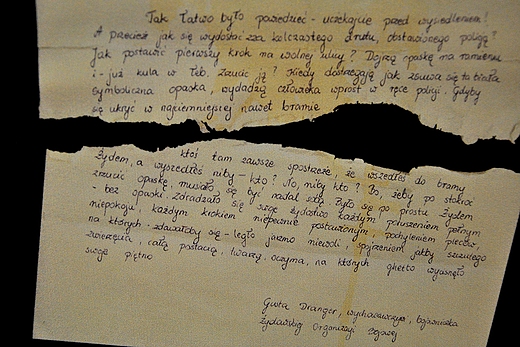 Tak łatwo było powiedzieć - uciekajcie przed wysiedleniem!
A przecież jak się wydostać zza kolczastego drutu, obstawionego policją?
Jak postawić pierwszy krok na wolnej ulicy? Dojrzą opaskę na ramieniu
i - już kula w łeb. Zrzucić ją? Kiedy dostrzegają jak zsuwa się ta biała
symboliczna opaska, wydadzą człowieka wprost w ręce policji. Gdyby
się ukryć w najciemniejszej nawet bramie
ktoś tam zawsze spostrzeże, że wszedłeś do bramy
Żydem, a wyszedłeś niby - kto? No, niby kto? Bo, żeby po stokroć
zrzucić opaskę, musiało się być nadal sobą. Było się po prostu Żydem
- bez opaski zdradzało się swoje żydostwo każdym poruszeniem pełnym
niepokoju, każdym krokiem niepewnie postawionym, pochyleniem pleców,
na których - zdawałoby się - legło jarzmo niewoli, spojrzeniem jakby szczutego
zwierzęcia, całą postacią, twarzą, oczyma, na których ghetto wycisnęło
swoje piętno
Gusta Dranger, wychowawczyni, bojowniczka
Żydowskiej Organizacji Bojowej